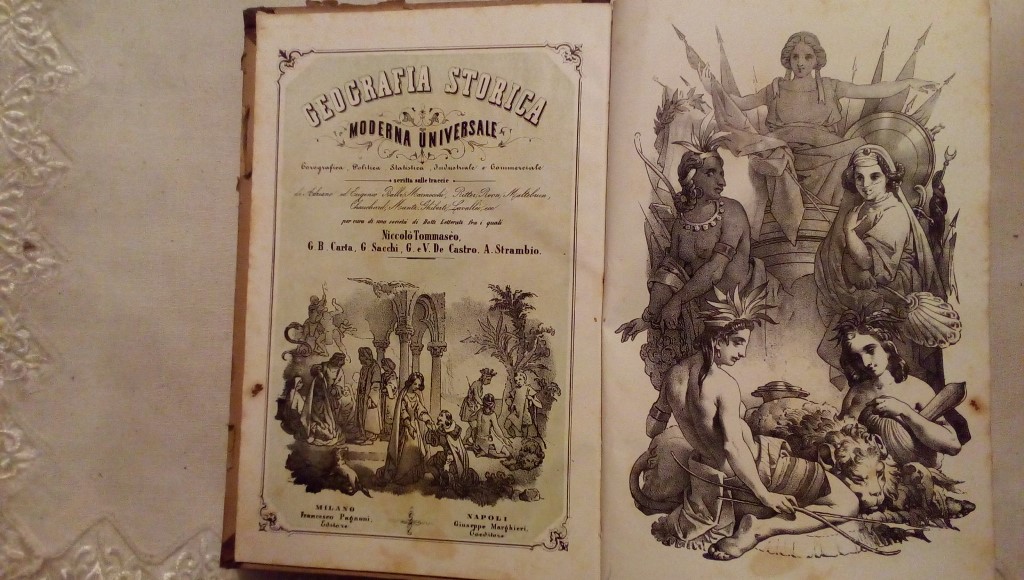 GEOGRAFIA STORICA
MODERNA UNIVERSALE
Corografica, Politica, Statistica, Industriale e Commerciale
scritta sulle traccie
di Adriano ed Eugenio Balbi, Marmocchi, Ritter, Rion, Maltebrun,
Chauchard, Muentz, Ghibert, Lavallée, ecc.
per cura di una società di Dotti Letterati fra i quali
Niccolò Tommaséo,
G. B. Carta, G. Sacchi, G. e V. De Castro, A. Strambio.
MILANO
Francesco Pagnoni,
Editore
NAPOLI
Giuseppe Marghieri,
Coeditore